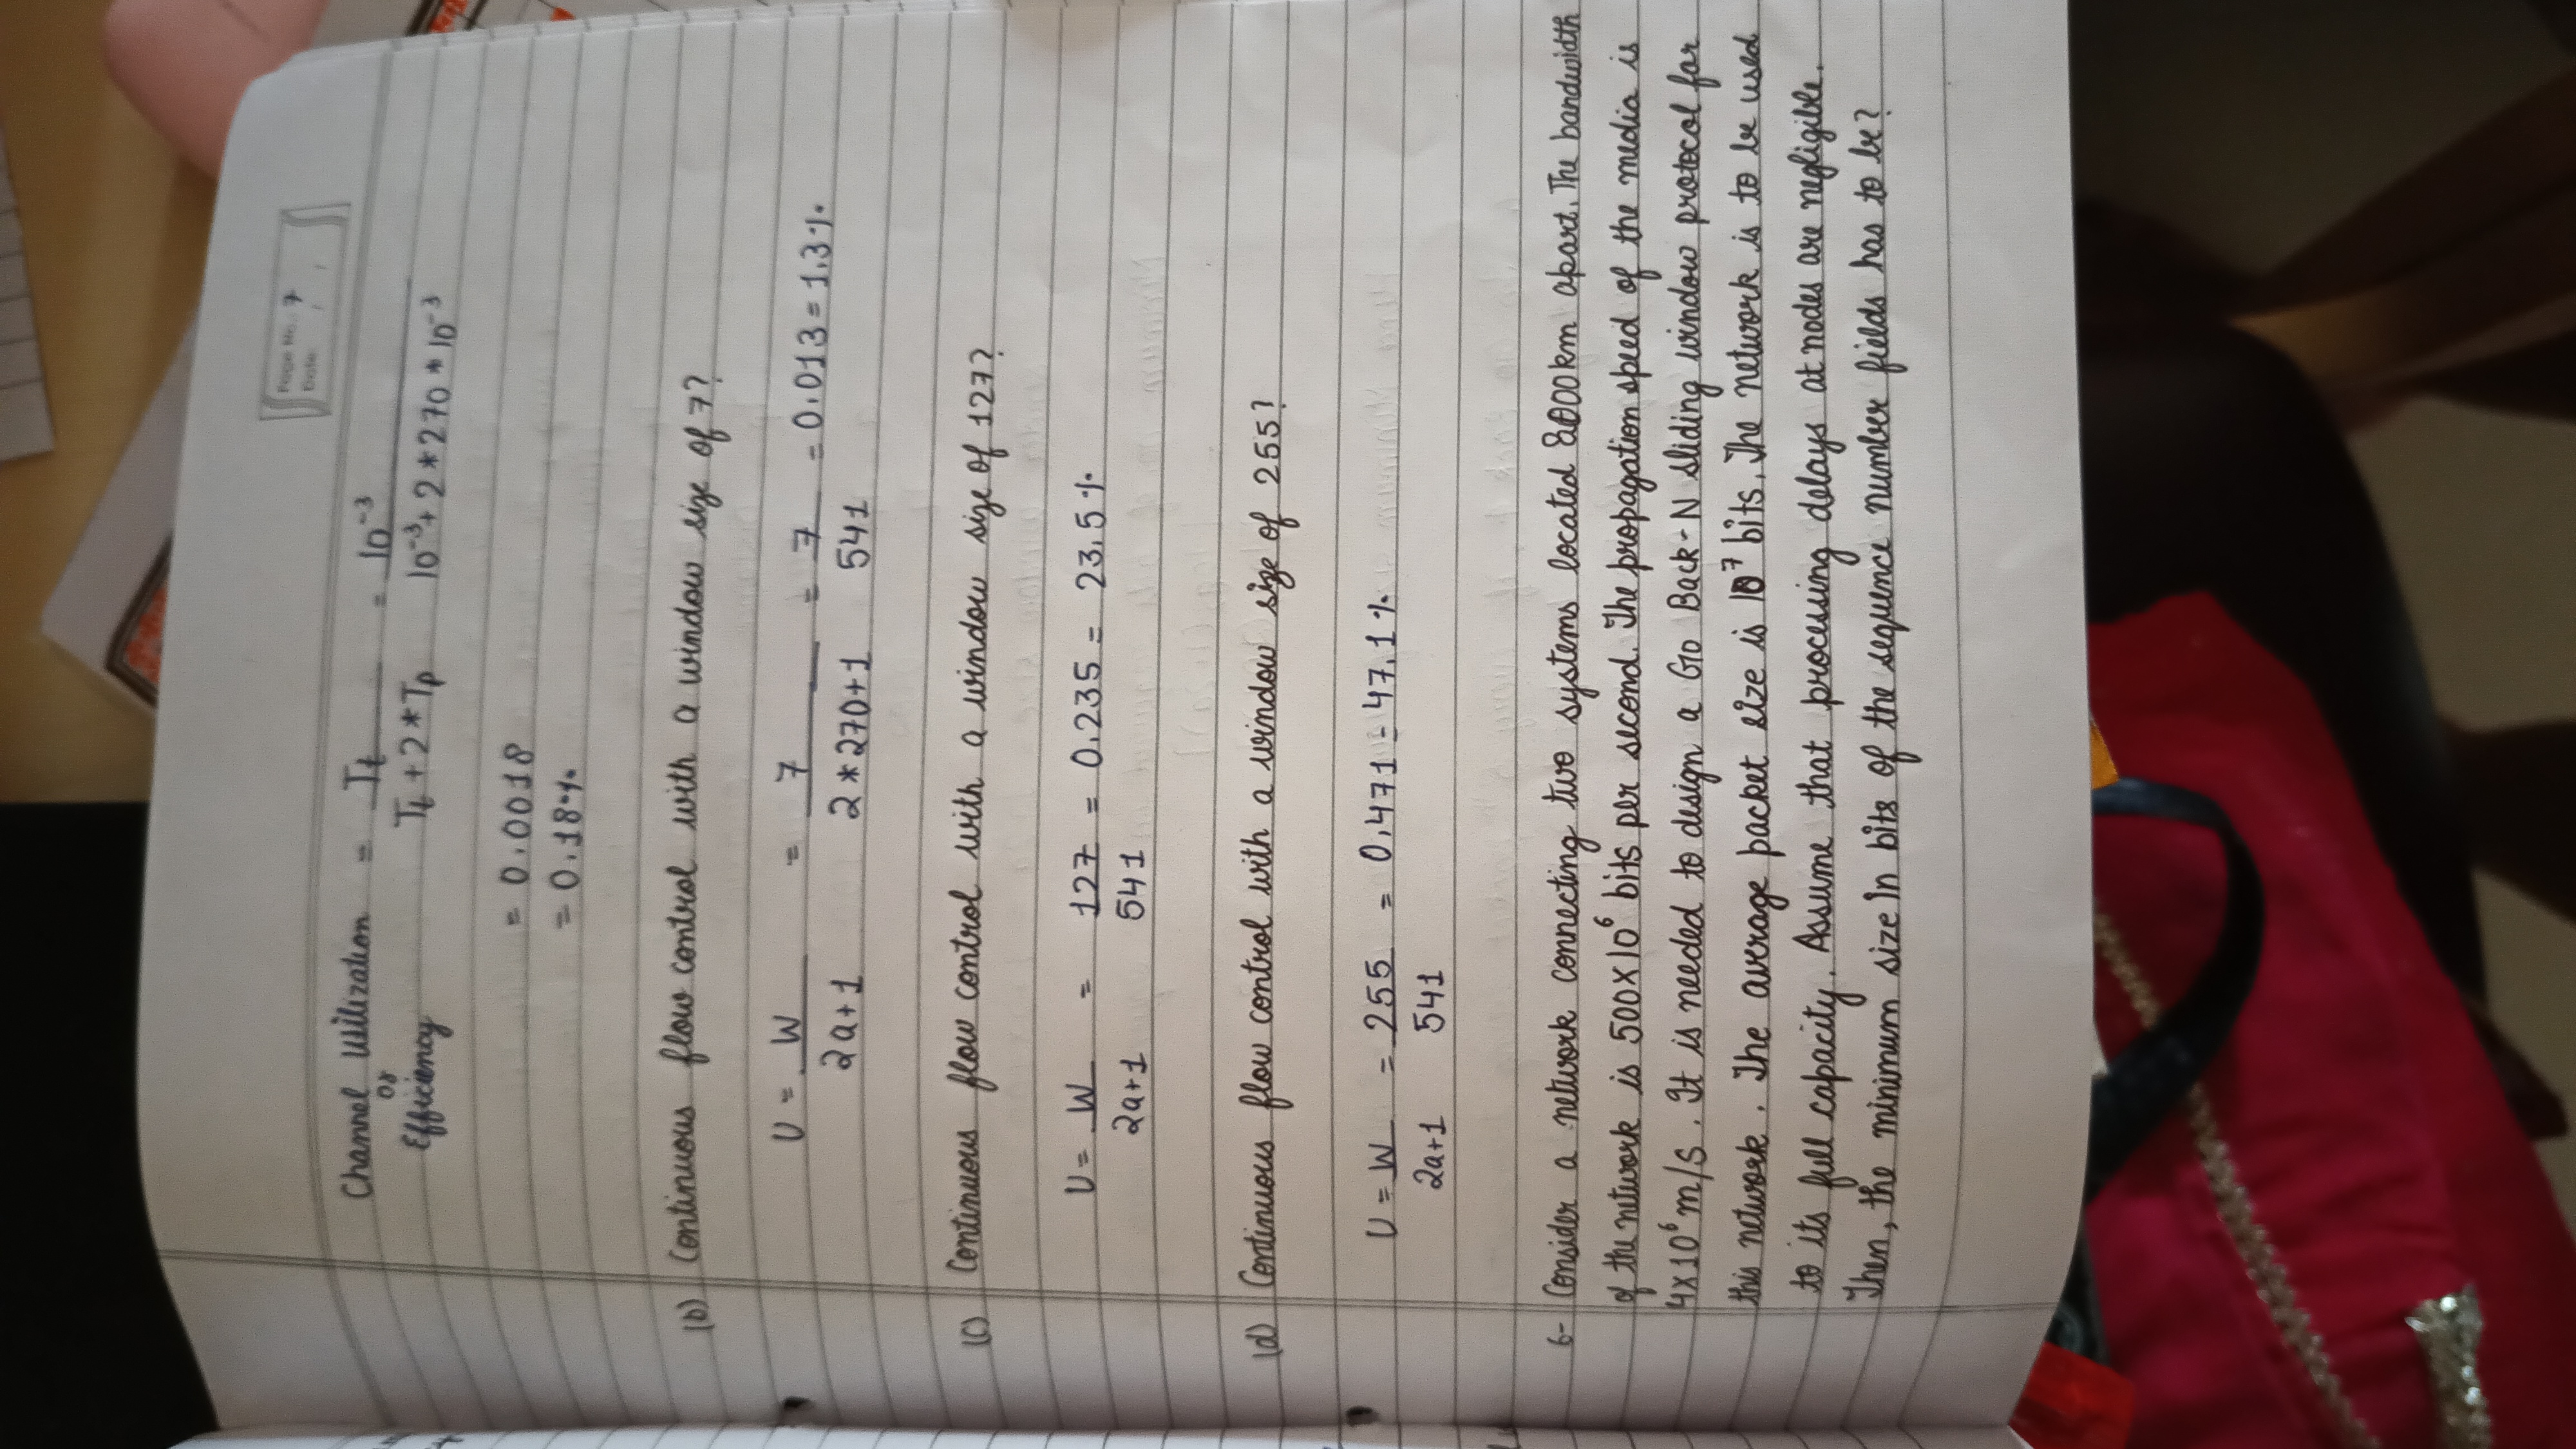 Page No.: 7
Date: / /
Channel Utilization = Tt / (Tt + 2 * Tp) = 10⁻³ / (10⁻³ + 2 * 270 * 10⁻³)
or
Efficiency
= 0.0018
= 0.18%
(b) Continuous flow control with a window size of 7?
U = W / (2a+1) = 7 / (2*270+1) = 7/541 = 0.013 = 1.3%
(c) Continuous flow control with a window size of 127?
U = W / (2a+1) = 127/541 = 0.235 = 23.5%
(d) Continuous flow control with a window size of 255?
U = W / (2a+1) = 255/541 = 0.471 = 47.1%
6- Consider a network connecting two systems located 8000km apart. The bandwidth
of the network is 500×10⁶ bits per second. The propagation speed of the media is
4×10⁶ m/s. It is needed to design a Go Back-N sliding window protocol for
this network. The average packet size is 10⁷ bits. The network is to be used
to its full capacity. Assume that processing delays at nodes are negligible.
Then, the minimum size in bits of the sequence number fields has to be?